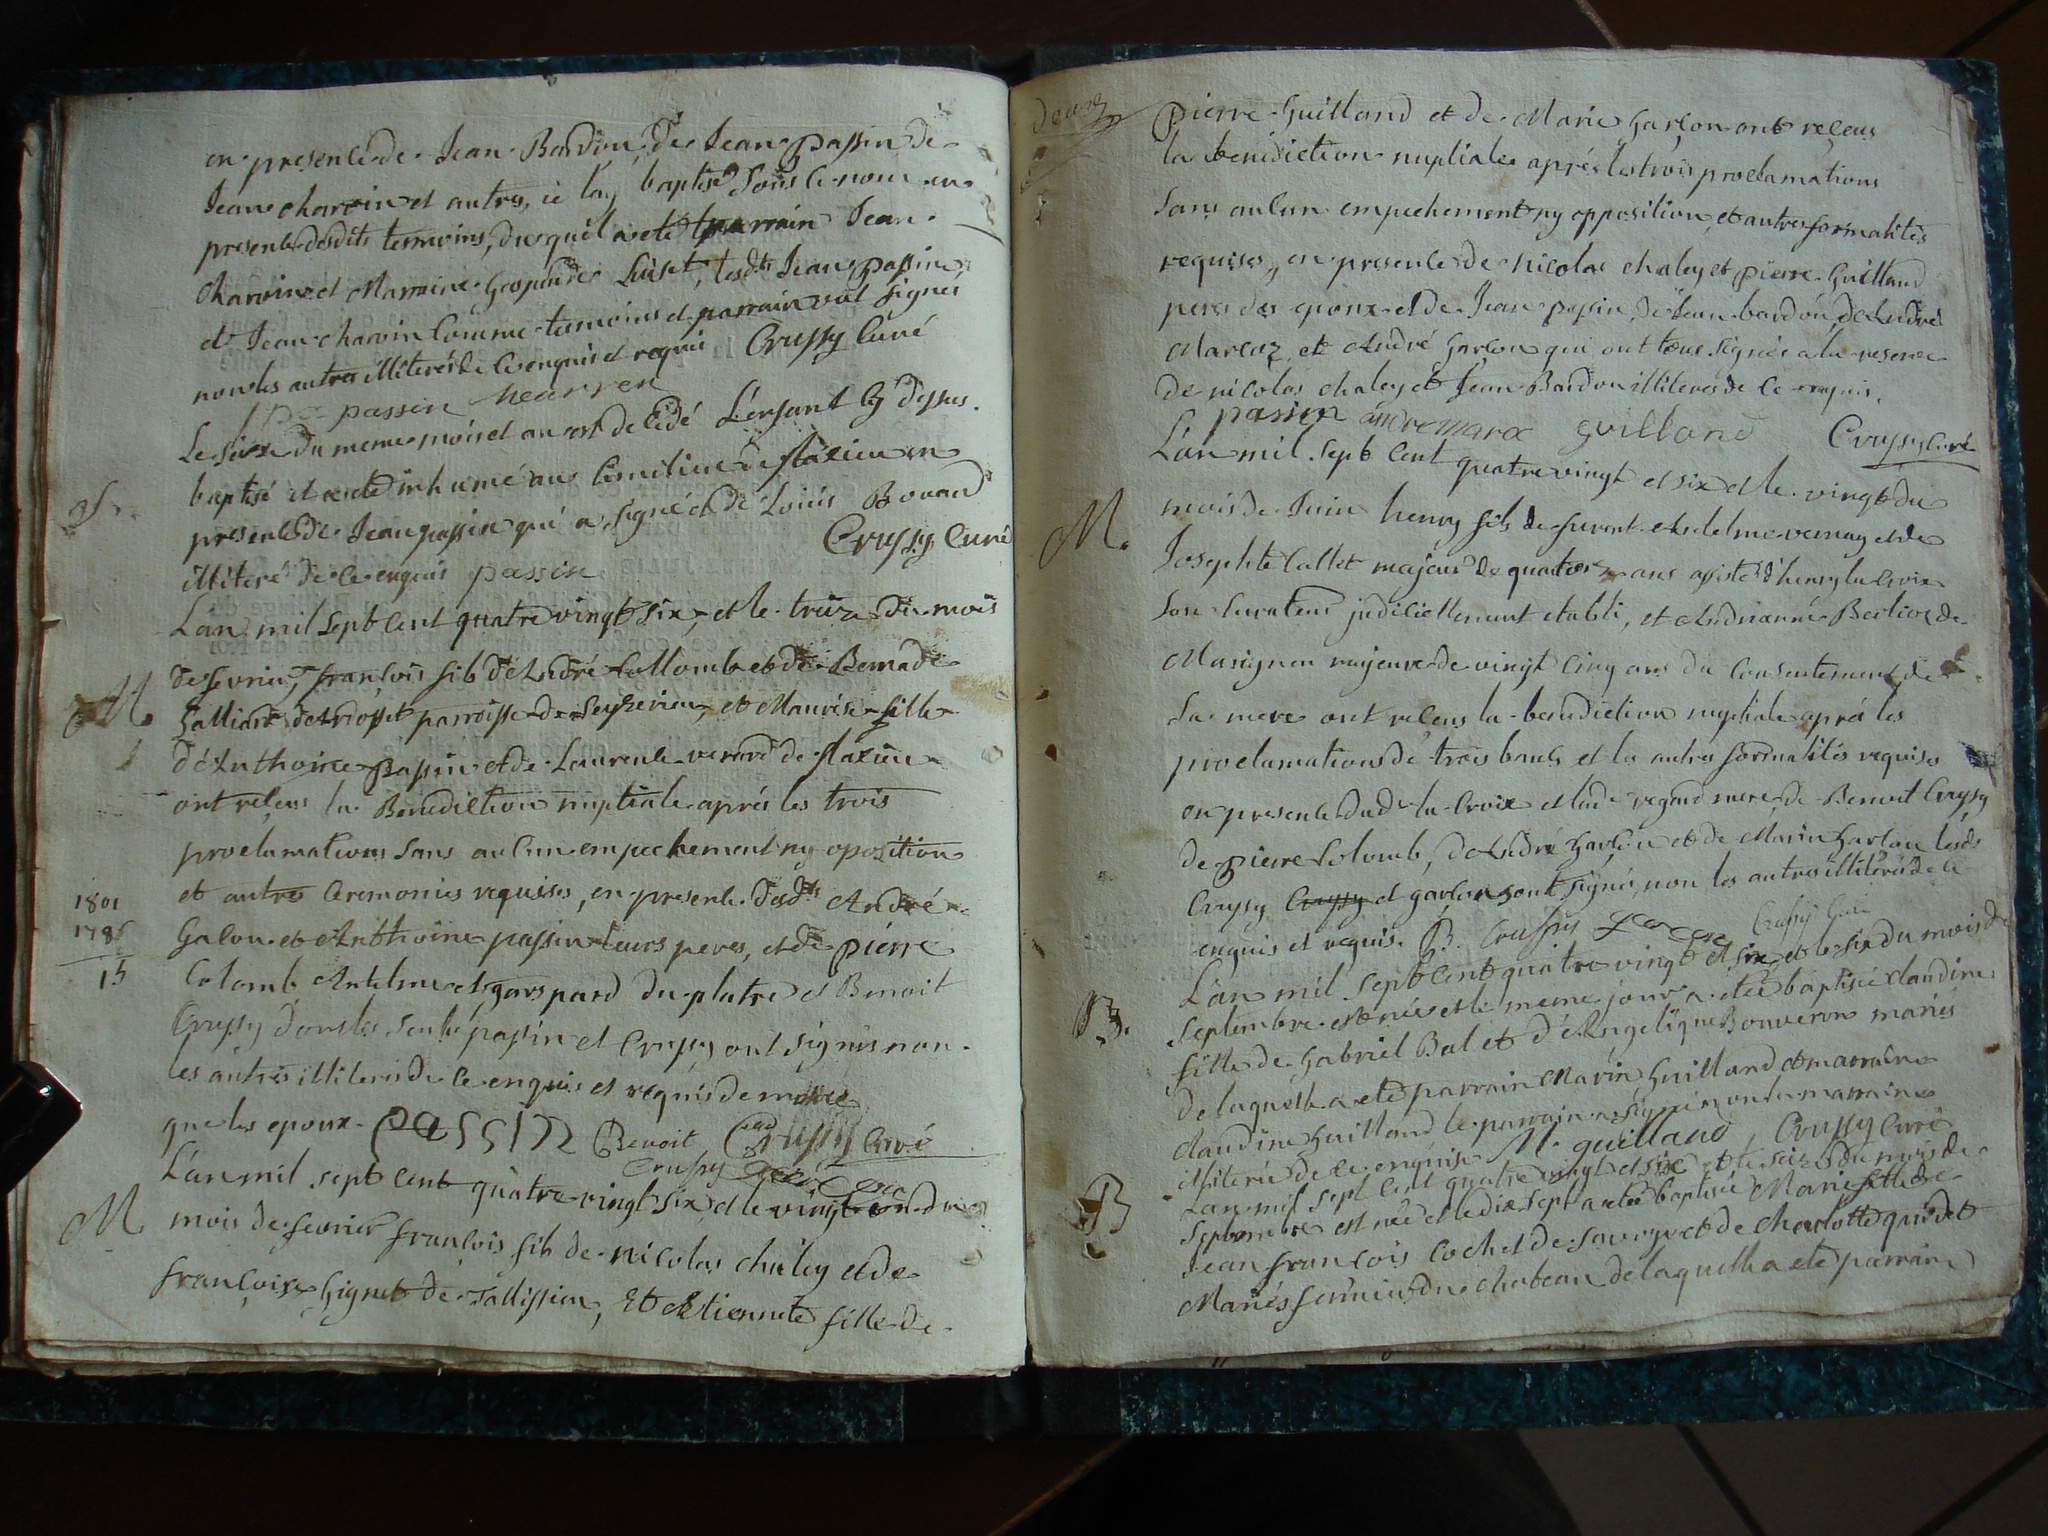 en presence de Jean Bardin, de Jean passin de
Jean charvin et autres, ie l'ay baptisé sous le nom en
presence desdits temoins, duquel a eté parrain Jean
charvin et Marraine lesdts Jean passin
et Jean charvin comme temoins et parrain ont signés
non les autres illiterés de ce enquis et requis Crussy Curé
passin
Le six du meme mois et an est decédé L'enfant cy dessus
baptisé et a eté inhumé au cimitiere de flaxieu en
presence de Jean passin qui a signé et de Louis Bovand
illiteré de ce enquis passin Crussy Curé
L'an mil sept cent quatre vingt six, et le treize du mois
M.
de fevrier, françois fils d'André Collomb et de Bernade
Galliard parroisse de Seyzerieu, et Maurise fille
d'Anthoine passin et de Laurence verard de flaxieu
ont reçeus la Benediction nuptiale aprés les trois
proclamations sans aucun empechement ny oposition
et autres ceremonies requises, en presence desdts André
1801
1786
15
et Anthoine passin leurs peres, et de pierre
Colomb Antelme et gaspard du platre et Benoit
Crussy passin et Crussy ont signés non
les autres illiterés de ce enquis et requis de meme
que les epoux. passin Benoit Crussy Crussy Curé
L'an mil sept cent quatre vingt six et le vingt du
M
mois de fevrier françois fils de nicolas chaley et de
françoise Gignet de Tallissieu, Et Etiennette fille de
pierre Guilland et de Marie Garçon ont reçeus
la benediction nuptiale aprés les trois proclamations
sans aucun empechement ny opposition, et autres formalités
requises, en presence de nicolas chaley et pierre Guilland
peres des epoux et de Jean passin, de Jean bardon, de André
Marcoz, et André Garçon qui ont tous signés a la reserve
de nicolas chaley et Jean Bardon illiterés de ce enquis.
passin andre marcoz guilland Crussy Curé
L'an mil sept cent quatre vingt et six et le vingt du
M.
mois de Juin henry fils de furent Antelme vernay et de
Josephte Callet majeur de ans assisté d'henry la Croix
son curateur judiciellement etabli, et Andrianne Berlioz de
Masignieu majeure de vingt cinq ans du consentement de
sa mere ont reçeus la benediction nuptiale aprés les
proclamations de trois bancs et les autres formalités requises
en presence dud la Croix et lade regard mere de Benoit Crussy
de pierre Colomb, d'André Garçon et de Marin Garçon lesds
Crussy et garçon sont signés, non les autres illiterés de ce
enquis et requis. B. Crussy garçon Crussy Curé
L'an mil sept cent quatre vingt et six et le six du mois de
B.
septembre est née et le meme jour a eté baptisée claudine
fille de Gabriel Bal et d'Angelique Bouveron mariés
de laquelle a eté parrain Marin Guilland et marraine
claudine Guilland le parrain a signé non la marraine
illiterée de ce enquise M. guilland, Crussy Curé
L'an mil sept cent quatre vingt et six et le seize du mois de
B
septembre est née et le dix sept a eté baptisée Marie fille de
Jean françois Cochet de et de charlotte
Mariés fermiers du chateau de laquelle a eté parrain